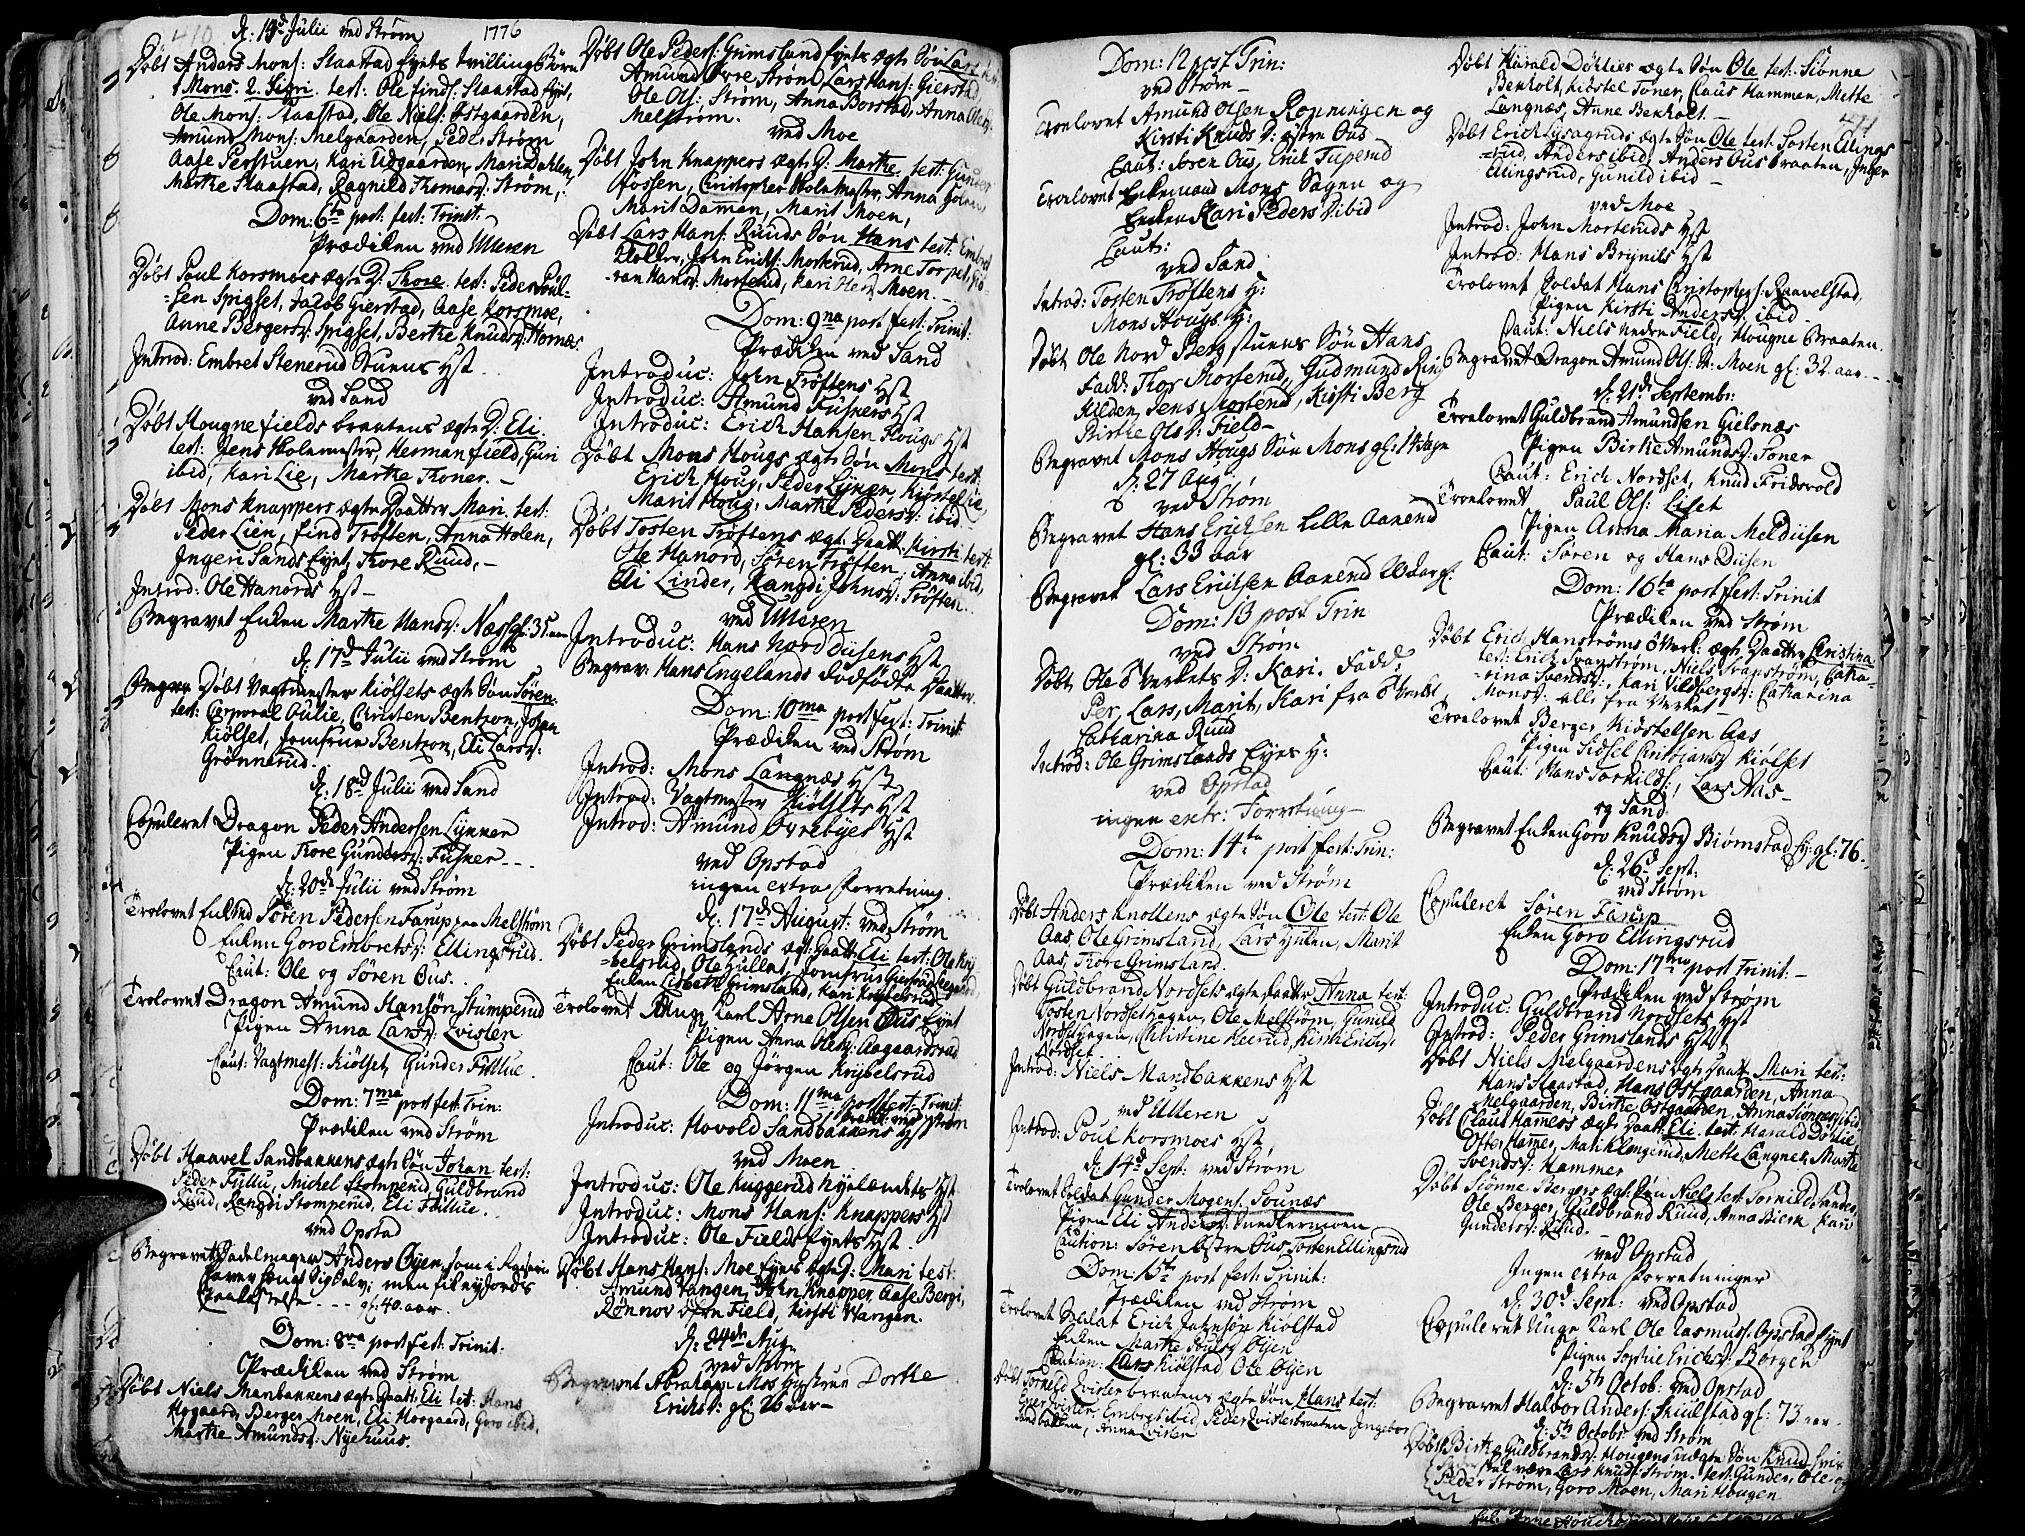 410
d: 14d Julii ved Strøm 1776
Døbt Anders Mons: Slaastad Eyets tvillingbørn
1 Mons. 2. Sigri. test: Ole Finds: Slaastad Eyet,
Ole Mons: Slaastad, Ole Niels: Østgaarden,
Amund Mons: Melgaarden, Peder Strøm
Aase Perstuen, Kari Udgaarden, Mari Dahlen,
Marthe Slaastad, Ragnild Thomasd: Strøm,
Dom: 6ta post fest: Trinit. –
Prædiken ved Ulleren
Døbt Poul Korsmoes ægte D: Thore. test: Peder Poul-
=sen Spigset, Jacob Gierstad, Aase Korsmoe,
Anne Bergersd: Spigset, Berthe Knudsd: Hornæs.
Introd: Embret Stenerud Stuens Hst
ved Sand
Døbt Hougnefields braatens ægte D: Eli.
test: Jens Holamester, Herman Field, Guri
ibid, Kari Lie, Marthe Thoner. –
Døbt Mons Knappers ægte Daatter Mari, test:
Peder Lien, Find Trøften, Anna Holen,
Ingeri Sands Eyet, Thore Ruud, –
Introd: Ole Hanords Hst –
Begravet Enken Marthe Hansd: Næss gl: 35 aar
d: 17d Julii ved Strøm
Døbt Vagtmester Kiølsets ægte Søn Søren.
test: Corporal Aulie, Christen Bentzon, Johan
Kiølset, Jomfrue Bentzon, Eli Larsd:
Grønnerud.
d: 18d Julii ved Sand
Copuleret Dragon Peder Andersen Lynner
Pigen Thore Gundersd: Fusker – – –
d: 20de Julii ved Strøm
Trolovet Enkemd Søren Pedersen Farup paa Melstrøm
Enken Goro Embretsd: Ellingsrud.
Caut: Ole og Søren Ous.
Trolovet Dragon Amund Hansøn Stumperud
Pigen Anna Larsd: Qvislen
Caut: Vagtmest: Kiølset, Gunder Fyllue.
Dom: 7ma post fest: Trin:
Prædiken ved Strøm
Døbt Haavel Sandbakkens ægte Søn Johan test:
Peder Fyllu, Michel Stomperud, Guldbrand
Ruud, Rangdi Stomperud, Eli Fyllue.
ved Opstad
Begravet Sadelmager Anders Øyen, som i Raseri
hengt sig selv; men fik nyfonds
– – – gl: 40 aar.
Dom: 8va post fest: Trinit:
Prædiken ved Strøm
Døbt Niels Manbakkens ægte Daatt: Eli test: Hans
Horgaard, Berger Moen, Eli Horgaard, Goro ibid.
Marthe Amundsd: Nyehuus.
Døbt Ole Peders: Grimsland Eyets ægte Søn Lars
Amund Øvre Strøm, Lars Hans: Gierstad
Ole Ols: Strøm, Anna Borstad, Anna Olesd:
Melstrøm.
ved Moe
Døbt John Knappers ægte D: Marthe. test: Gunder
Fossen, Christopher Holmester, Anna Holen,
Marit Dammen, Marit Moen,
Døbt Lars Hans: Ruuds Søn Hans test: Embret
Holler, John Erichs: Morterud, Arne Torpet,
Hansd: Morterud, Kari Moen. –
Dom: 9na post fest: Trinit:
Prædiken ved Sand
Introduc: John Trøftens Hst
Introduc: Amund Fuskers Hst
Introduc: Erich Hansen Hougs Hst
Døbt Mons Hougs ægte Søn Mons test:
Erich Houg, Peder Lynner, Kiøstel Lie,
Marit Houg, Marthe Pedersd: ibid
Døbt Tosten Trøftens ægte Daatt: Kirsti test:
Ole Hanord, Søren Trøften, Anna ibid,
Eli Linder, Rangdi Johnsd: Trøften.
ved Ulleren
Introduc: Hans Nord Diisens Hst
Begrav: Hans Engelands dødfødte Daatter
Dom: 10ma post fest: Trinit
Prædiken ved Strøm
Introd: Mons Langnæs Hst
Introd: Vagtmester Kiølsets Hst
Introd: Amund Øvrebyes Hst
ved Opstad
ingen extra Forretning.
d: 17de August: ved Strøm
Døbt Peder Grimslands ægt: Daatt: Eli test: Ole Kny-
=belsrud, Ole Hullet, Jomfrue
Enken Lisbeth Grimsland, Kari Knybelsrud
Trolovet Unge Karl Arne Olsen Ous Eyet
Pigen Anna Olesd: Aagaardsrud
Caut: Ole og Jørgen Knybelsrud
Dom: 11ma post fest: Trinit:
Præd: ved Strøm
Introduc: Hovold Sandbakkens Hst
ved Moen
Introduc: Ole Kuggerud Nyelændets Hst
Introduc: Mons Hans: Knappers Hst
Introduc: Ole Fields Eyets Hst.
Døbt Hans Hans: Moe Eyes ægte D: Mari test:
Amund Vangen, John Knapper, Aase Bergi,
Rønnov øfre Field, Kirsti Wangen.
d: 24de Aug.
ved Strøm
Begravet Abraham Moe Hustrue Dorthe
Erichsd: gl: 26 aar –
Dom: 12 post Trin:
ved Strøm –
Troelovet Amund Olsen Rønningen og
Kirsti Knuds D: østre Ous
Caut: Søren Ous, Erich Tuperud
Troelovet Enkemand Mons Sagen og
Enken Kari Peders D ibid
Caut:
ved Sand
Introd: Tosten Trøftens H:
Mons Hougs H:
Døbt Ole Nord Bergstuens Søn Hans
Fadd: Thor Morterud, Gudmund Ring
Kilden, Jens Morterud, Kirsti Berg
Birthe Ols D: Field –
Begravet Mons Hougs Søn Mons gl: 14 dage
d: 27 Aug
ved Strøm
Begravet Hans Erichsen Lille Aanerud
gl: 33 aar
Begravet Lars Erichsen Aanerud 20 aar gl:
Dom: 13 post Trin
ved Strøm
Døbt Ole Ø Verkets D: Kari. Fadd:
Per, Lars, Marit, Kari fra Ø Verket,
Catharina Ruud
Introd: Ole Grimslands Eyes H:
ved Opstad
ingen extr: Forretning –
Dom: 14ta post fest: Trin:
Prædiken ved Strøm
Døbt Anders Knollens ægte Søn Ole test: Ole
Aas, Ole Grimsland, Lars Hulen, Marit
Aas, Thore Grimsland.
Døbt Guldbrand Nordsets ægte Daatter Anna test:
Tosten Nordsethagen, Ole Melstrøm, Gunild
Nordsethagen, Christine Keerud, Kirsti Erichsd:
Nordset
Introd: Niels Mandbakkens Hst
ved Ulleren
Introd: Poul Korsmoes Hst
d: 14d Sept: ved Strøm
Trolovet Soldat Gunder Mogens: Sounæs
Pigen Eli Andersd:
Caution: Søren østre Ous, Tosten Ellingsrud
Dom: 15ta post fest: Trinit:
Prædiken ved Strøm
Trolovet Soldat Erich Johnsøn Kiølstad
Enken Marthe Poulsd: Øyen
Caution: Lars Kiølstad, Ole Øyen
Døbt Torkild Qvislerbraatens ægte Søn Hans test:
Iver Qvisler, Embret ibid, Peder Qvislerbraaten, Ingebor
Sandbakken, Anna Qvisler
411
Døbt Harald Døhlies ægte Søn Ole test: Siønne
Benholt, Kiøstel Joner, Claus Hammer, Mette
Langnæs, Anne Benholt. –
Døbt Erich Lysagruds ægte Søn Ole test Tosten Ellings
=rud, Anders ibid, Anders Ousbraaten, Inger
Ellingsrud, Gunild ibid –
ved Moe
Introd: John Morteruds Hst
Introd: Hans Brynils Hst
Trolovet Soldat Hans Christophers: Raavelstad,
Pigen Kirsti Andersd: ibid
Caut: Niels nedre Field, Hougne Braaten.
Begravet Dragon Amund Ols: N: Moen gl: 32 aar. –
d: 21d Septembr:
Troelovet Guldbrand Amundsen Gielsnæs
Pigen Birthe Amundsd: Toner
Caut: Erich Nordset, Knud Fridsvold
Troelovet Paul Ols: Liset
Pigen Anna Maria Meldiisen
Caut: Søren og Hans Diisen
Dom: 16ta post fest: Trinit
Prædiken ved Strøm
Døbt Erich Hanstrøms Ø Verk: ægte Daatter Christina
test: Erich Svanstrøm, Niels Svanstrøm, Catha-
=rina Svendsd:, Kari Vildbergsd: Catharina
Monsd: alle fra Verket –
Troelovet Berger Kiøstelsen Aas
Pigen Sidsel Christiansd Kiølset
Caut: Hans Torkilds:, Lars Aas –
og Sand
Begravet Enken Goro Knudsd: Biørnstad Ey: gl: 76.
d: 26d Sept:
ved Strøm
Copuleret Søren Farup
Enken Goro Ellingsrud
Dom: 17ma post Trinit: –
Prædiken ved Strøm
Introduc: Guldbrand Nordsets Hst
Introd: Peder Grimslands Hst
Døbt Niels Melgaardens ægte Daatt: Mari test:
Hans Slaastad, Hans Østgaarden, Anna
Melgaarden, Birthe Østgaarden, Anna ibid
Døbt Claus Hamers ægte Daatt: Eli test: Harald Døhlie
Offer Hamer, Mari Klongerud, Mette Langnes, Marthe
Svendsd: Hammer
Døbt Siønne Bergers ægte Søn Niels test Tormild Sander,
Ole Berger, Guldbrand Ruud, Anna Bierk, Kari
Gundersd: Ruud. –
ved Opstad
Ingen extra Forretninger
d: 30d Sept: ved Opstad
Copuleret Unge Karl Ole Rasmus: Opstad Eyet
Pigen Sophie Erichsd: Borgen
d: 5th Octob: ved Opstad
Begravet Halvor Anders: Skiulstad gl: 73 aar.
d: 5th Octobr ved Strøm
Døbt Birthe Guldbrandsd: Hougens uægte Søn Knud
skal være Lars Knuds: Strøm. test: Gunder, Ole og
Peder Strøm, Goro Moen, Mari Hougen